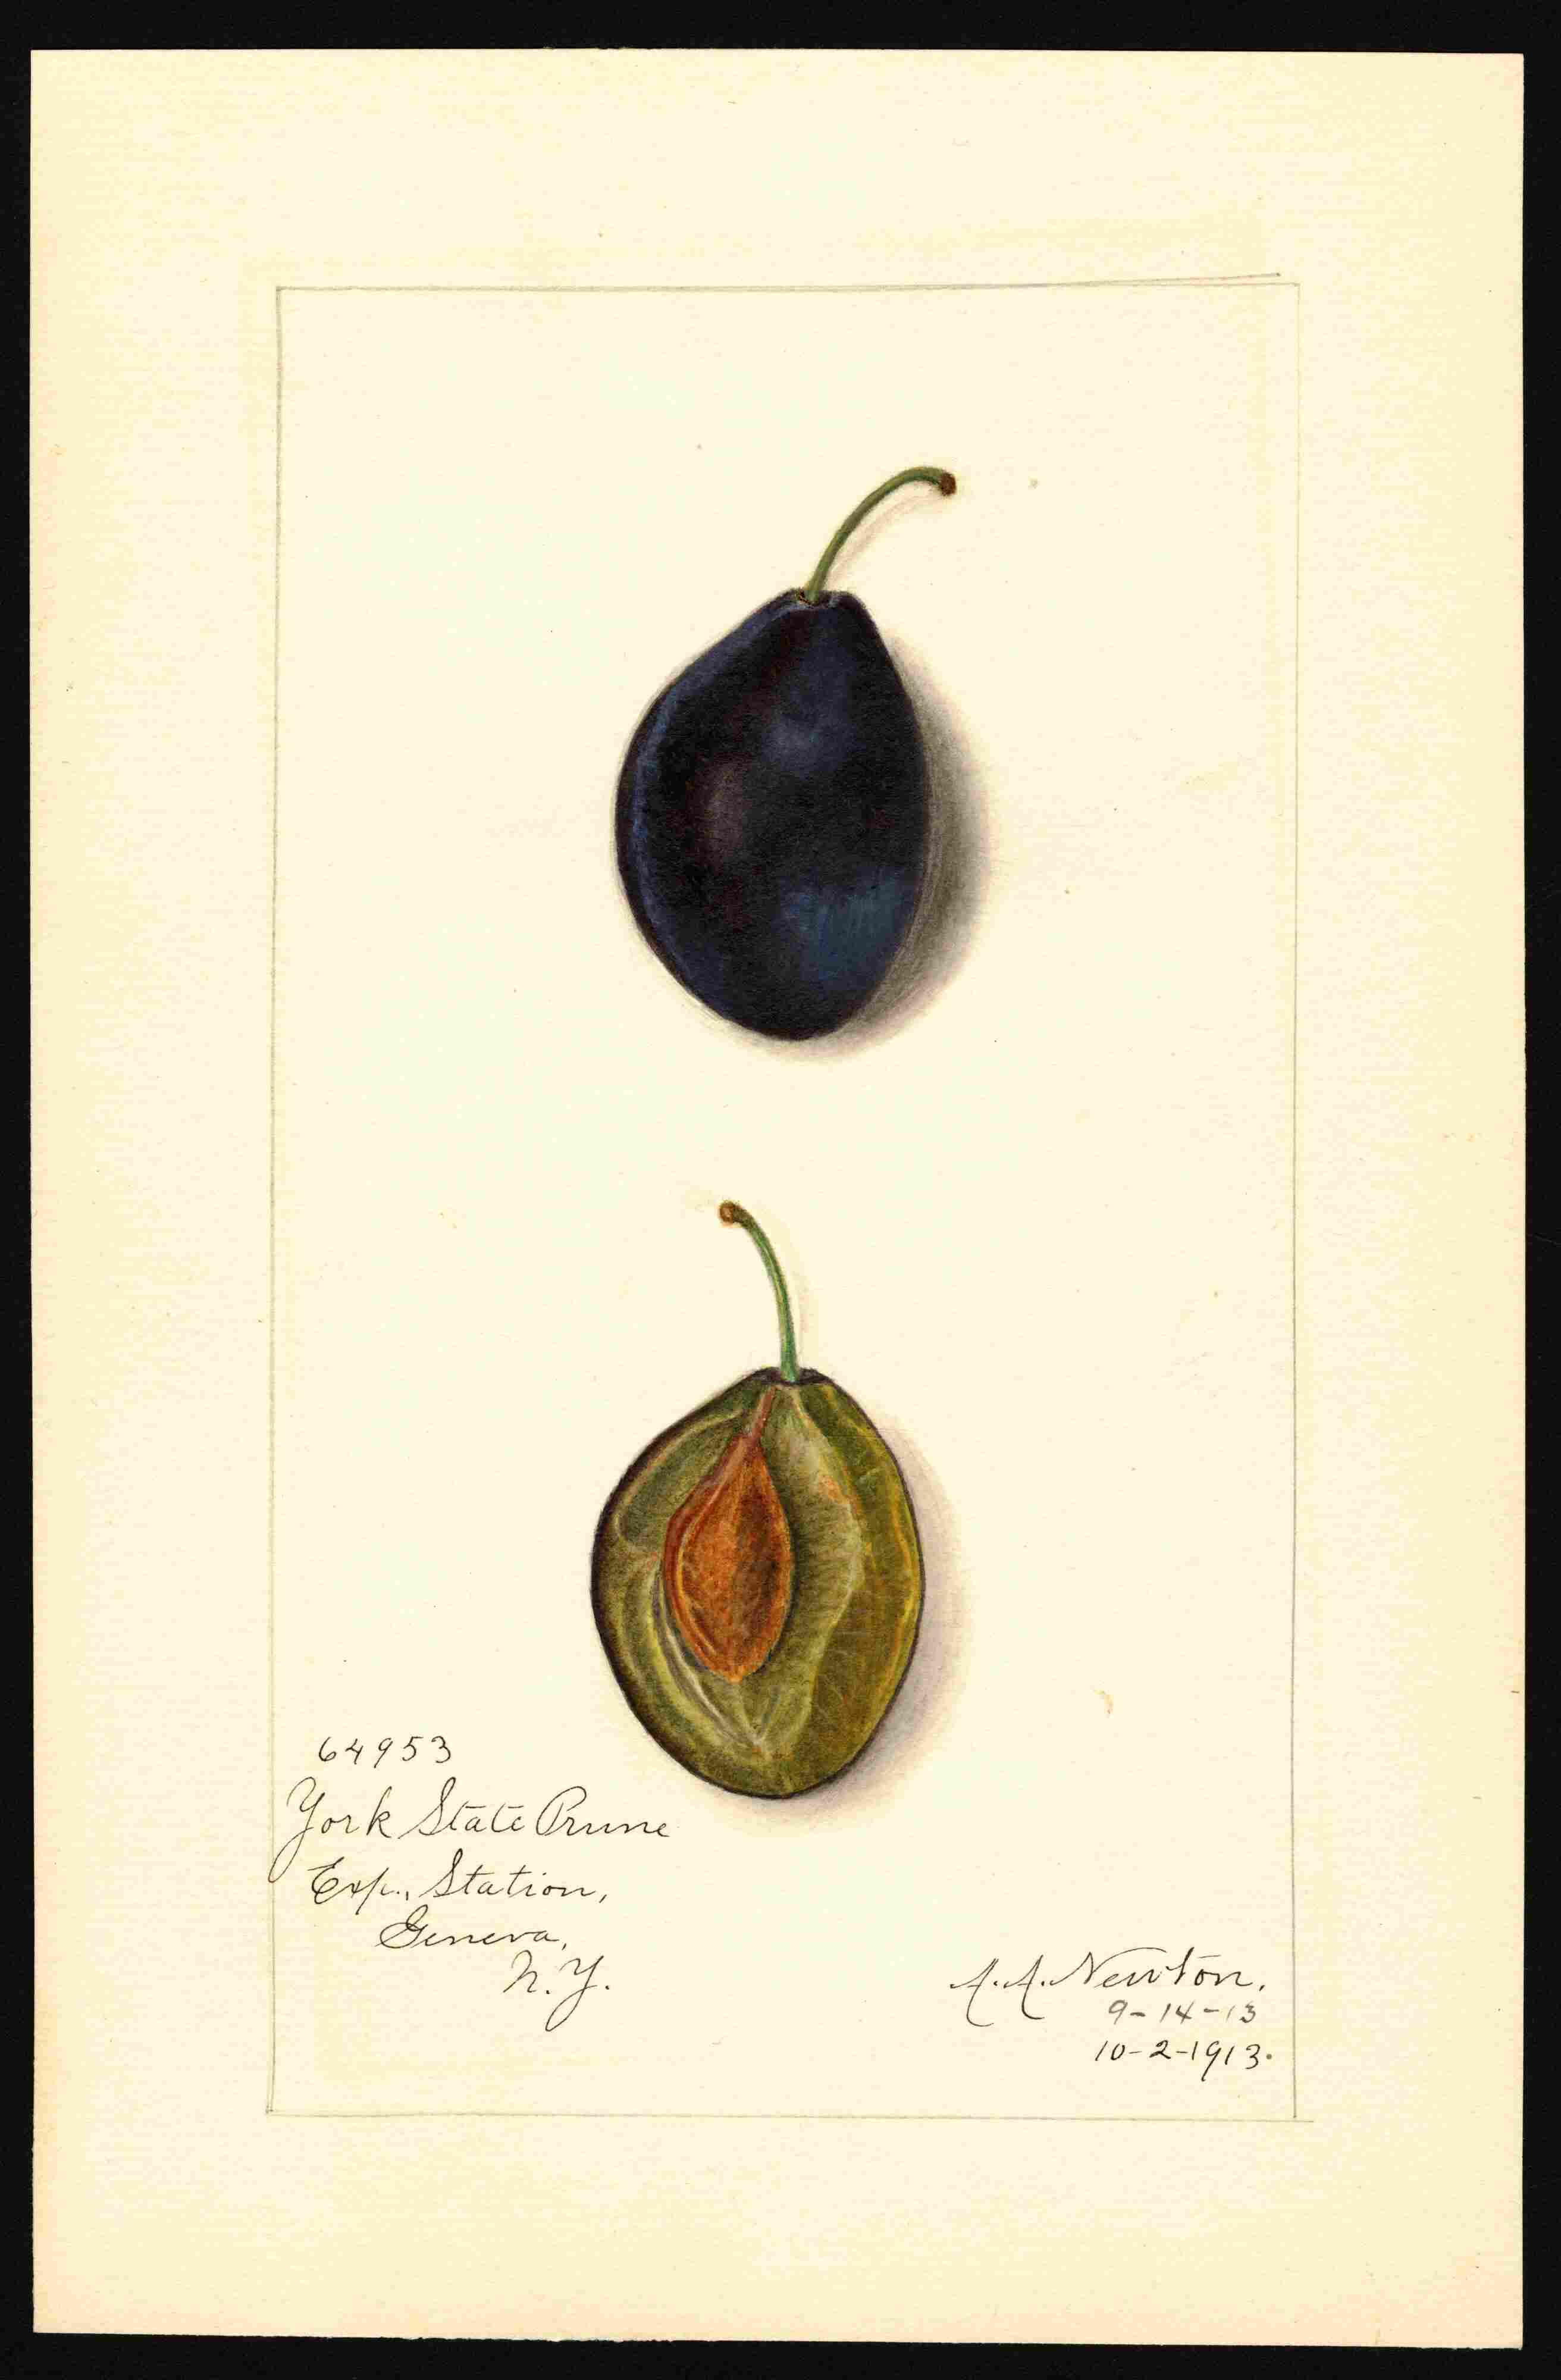 64953
York State Prune
Exp., Station,
Geneva,
N.Y.
A.A. Newton.
9-14-13
10-2-1913.